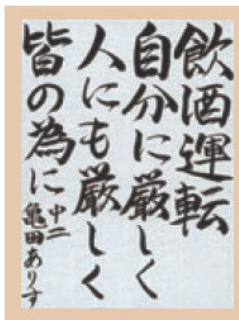 飲酒運転
自分に厳しく
人にも厳しく
皆の為に
中二
亀田ありす